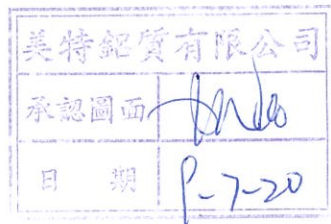 美特鋁質有限公司
承認圖面
日 期 P-7-20